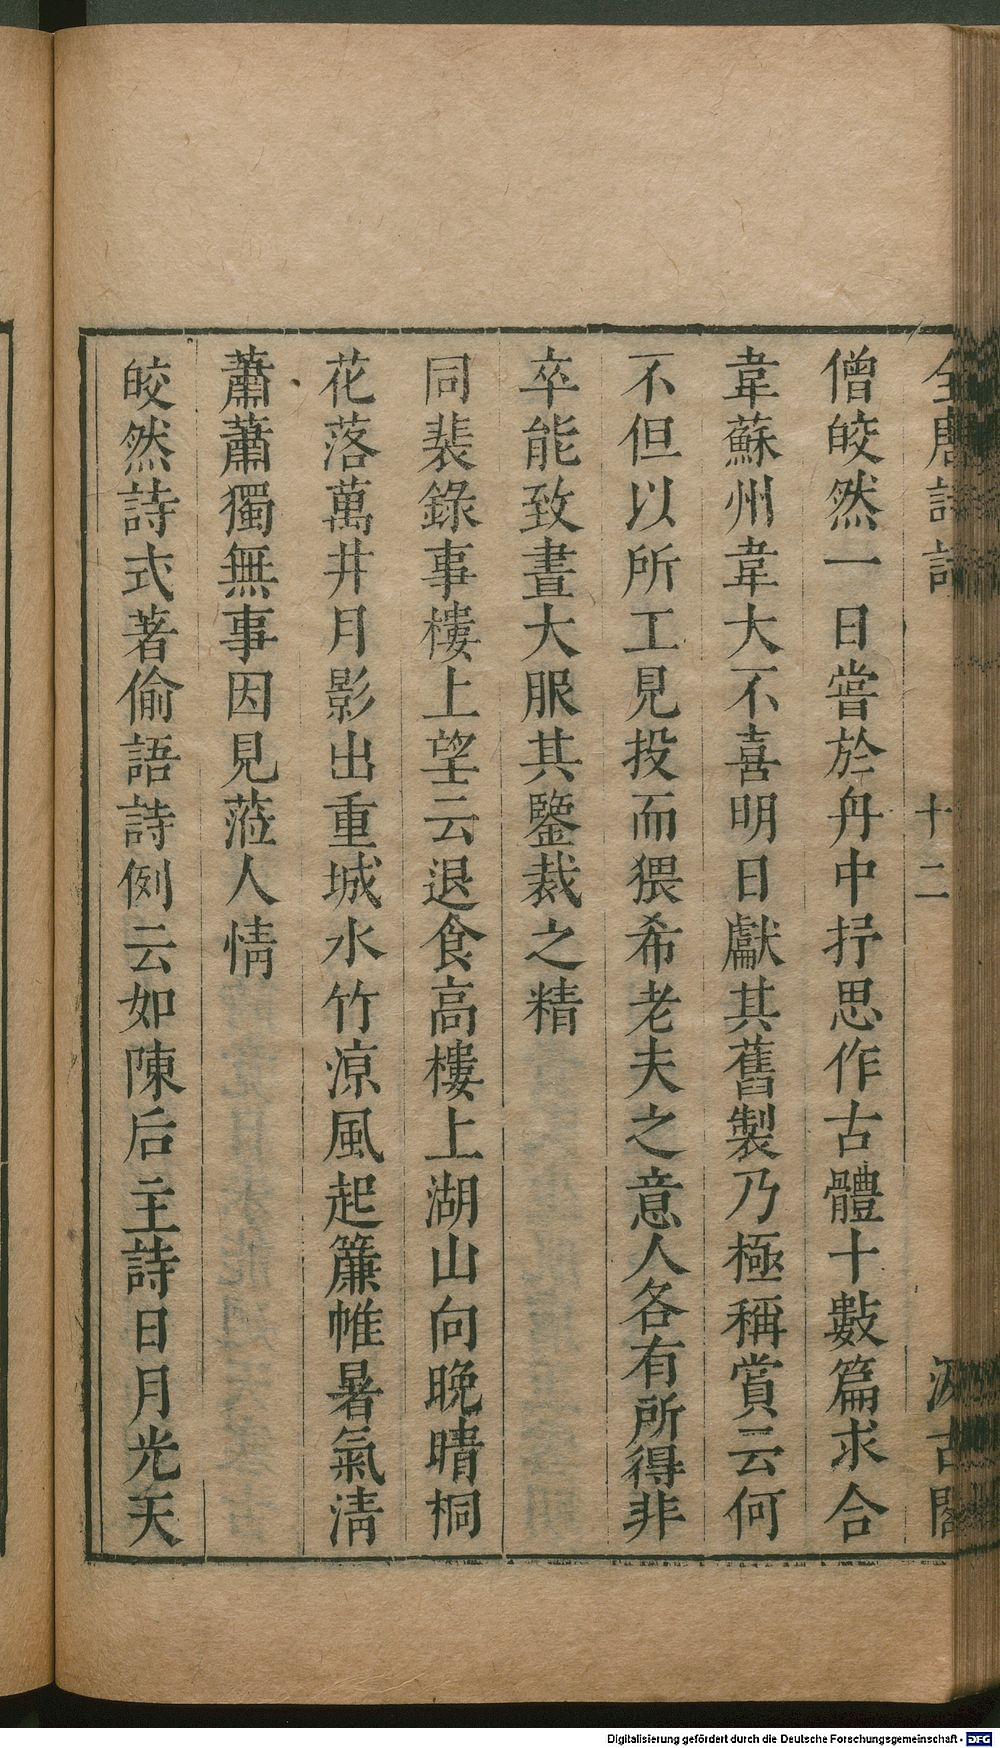 全唐詩話 十二 汲古閣
僧皎然一日嘗於舟中抒思作古體十數篇求合
韋蘇州韋大不喜明日獻其舊製乃極稱賞云何
不但以所工見投而猥希老夫之意人各有所得非
卒能致晝大服其鑒裁之精
同裴錄事樓上望云退食高樓上湖山向晚晴桐
花落萬井月影出重城水竹凉風起簾帷暑氣清
蕭蕭獨無事因見蒞人情
皎然詩式著偷語詩例云如陳后主詩日月光天
Digitalisierung gefördert durch die Deutsche Forschungsgemeinschaft - DFG